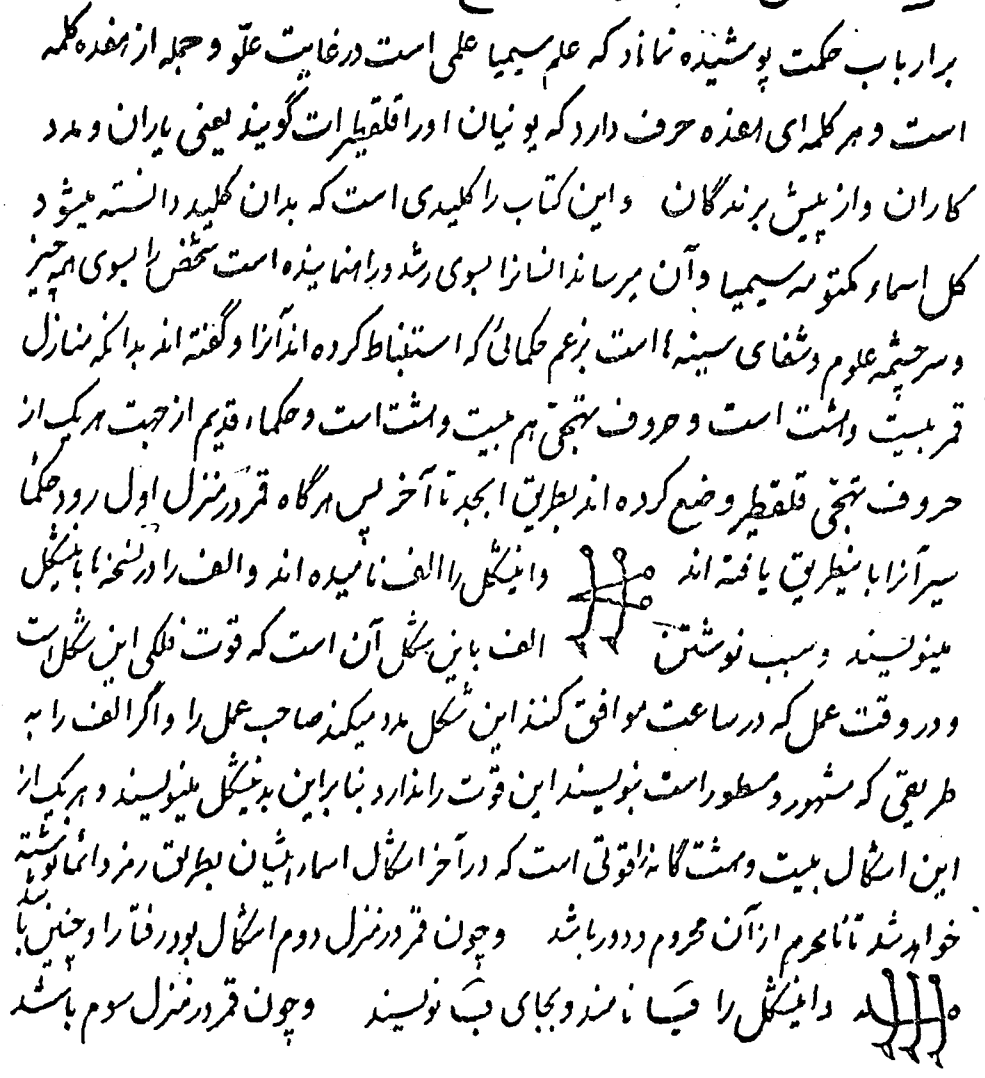 بر ارباب حکمت پوشیده نماند که علم سیمیا علمی است در غایت علوّ و جمله از هفده کلمه
است و هر کلمه‌ای هفده حرف دارد که یونیان او را قلقطیرات گویند یعنی یاران و مدد
کاران و از پیش برندگان و این کتاب را کلیدی است که بدان کلید دانسته میشود
کل اسماء مکتومه سیمیا و آن میرساند انسانرا بسوی رشد و راهنماینده است شخص را بسوی همه چیز
و سرچشمه علوم و شفای سینه‌ها است بزعم حکمائی که استنباط کرده‌اند آنرا و گفته‌اند بدانکه منازل
قمر بیست و هشت است و حروف تهجّی هم بیست و هشت است و حکماء قدیم از جهت هر یک از
حروف تهجّی قلقطیر وضع کرده‌اند بطریق ابجد تا آخر پس هرگاه قمر در منزل اول رود حکما
سیر آنرا باینطریق یافته‌اند و اینشکل را الف نامیده‌اند و الف را در نسخه‌ها باینشکل
مینویسند و سبب نوشتن الف باین شکل آن است که قوت فلکی این شکل است
و در وقت عمل که در ساعت موافق کنند این شکل مدد میکند صاحب عمل را و اگر الف را به
طریقی که مشهور و مسطور است بنویسند این قوت را ندارد بنابراین بدینشکل مینویسند و هر یک از
این اشکال بیست و هشت گانه را قوتی است که در آخر اشکال اسماء ایشان بطریق رمز دائما نوشته
خواهد شد تا نامحرم از آن محروم و دور باشد و چون قمر در منزل دوم اشکال بود رفتار او چنین باشد
و اینشکل را نامند و بجای ب نویسند و چون قمر در منزل سوم باشد